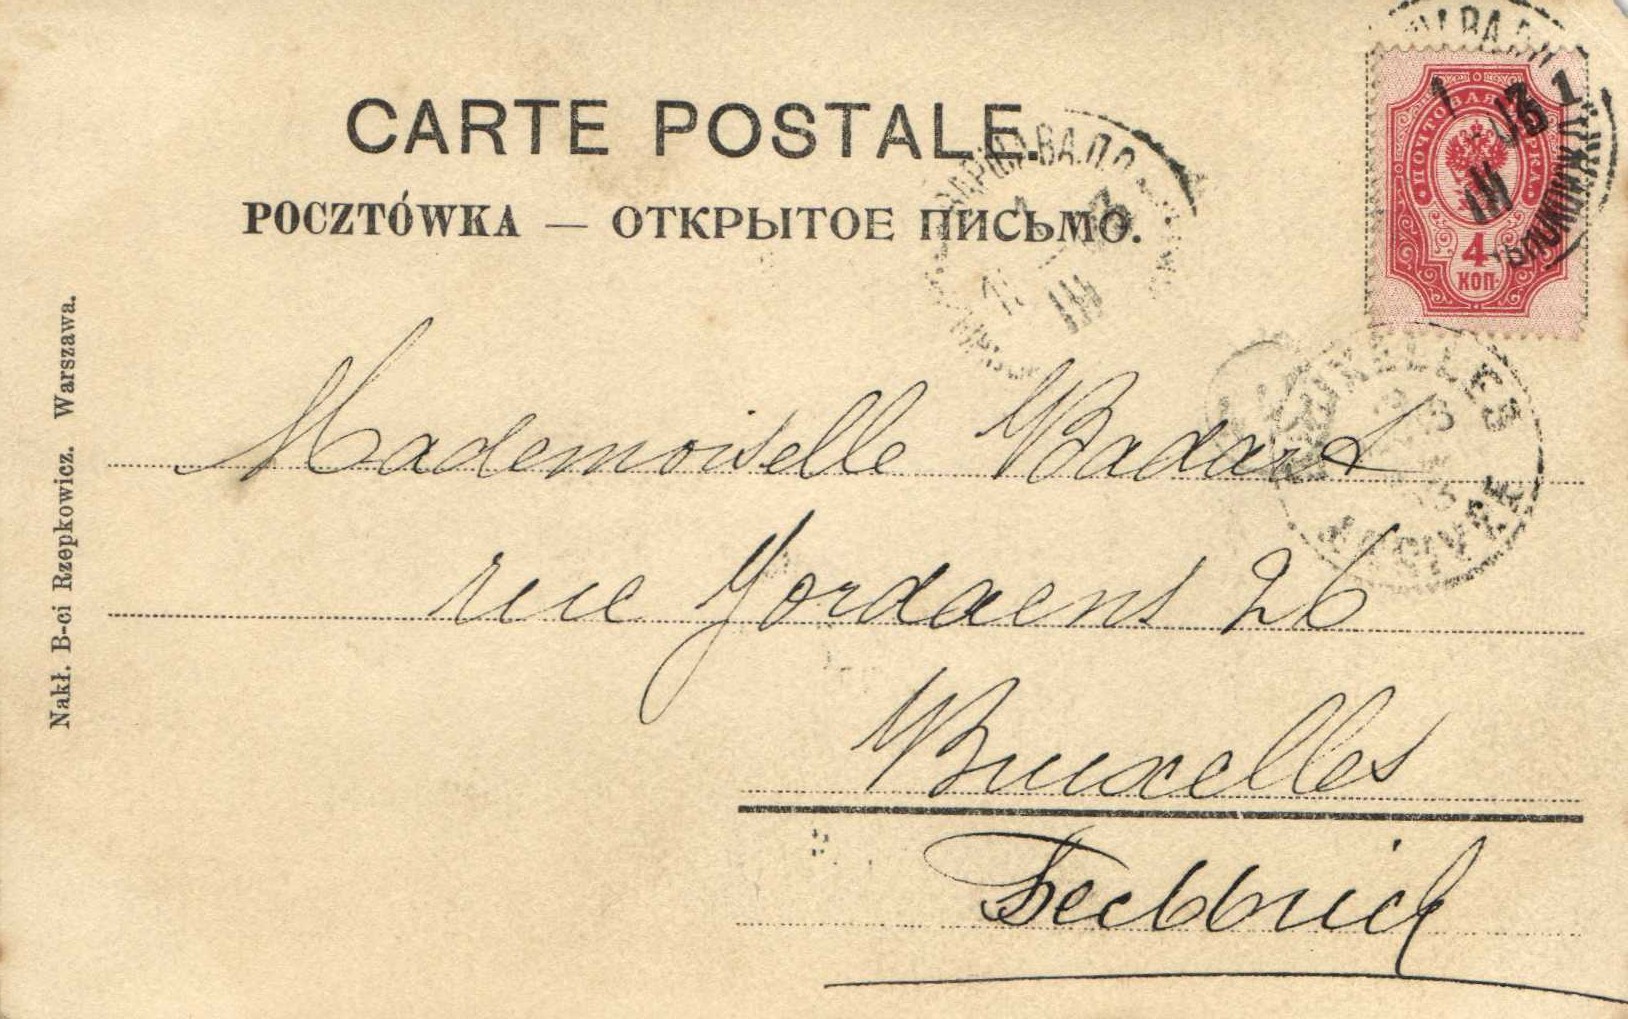 CARTE POSTALE.
POCZTÓWKA — ОТКРЫТОЕ ПИСЬМО.
ПОЧТОВАЯ МАРКА.
4
КОП.
BRUXELLES
Mademoiselle Badart
rue Jordaens 26
Bruxelles
Nakł. B-ci Rzepkowicz. Warszawa.